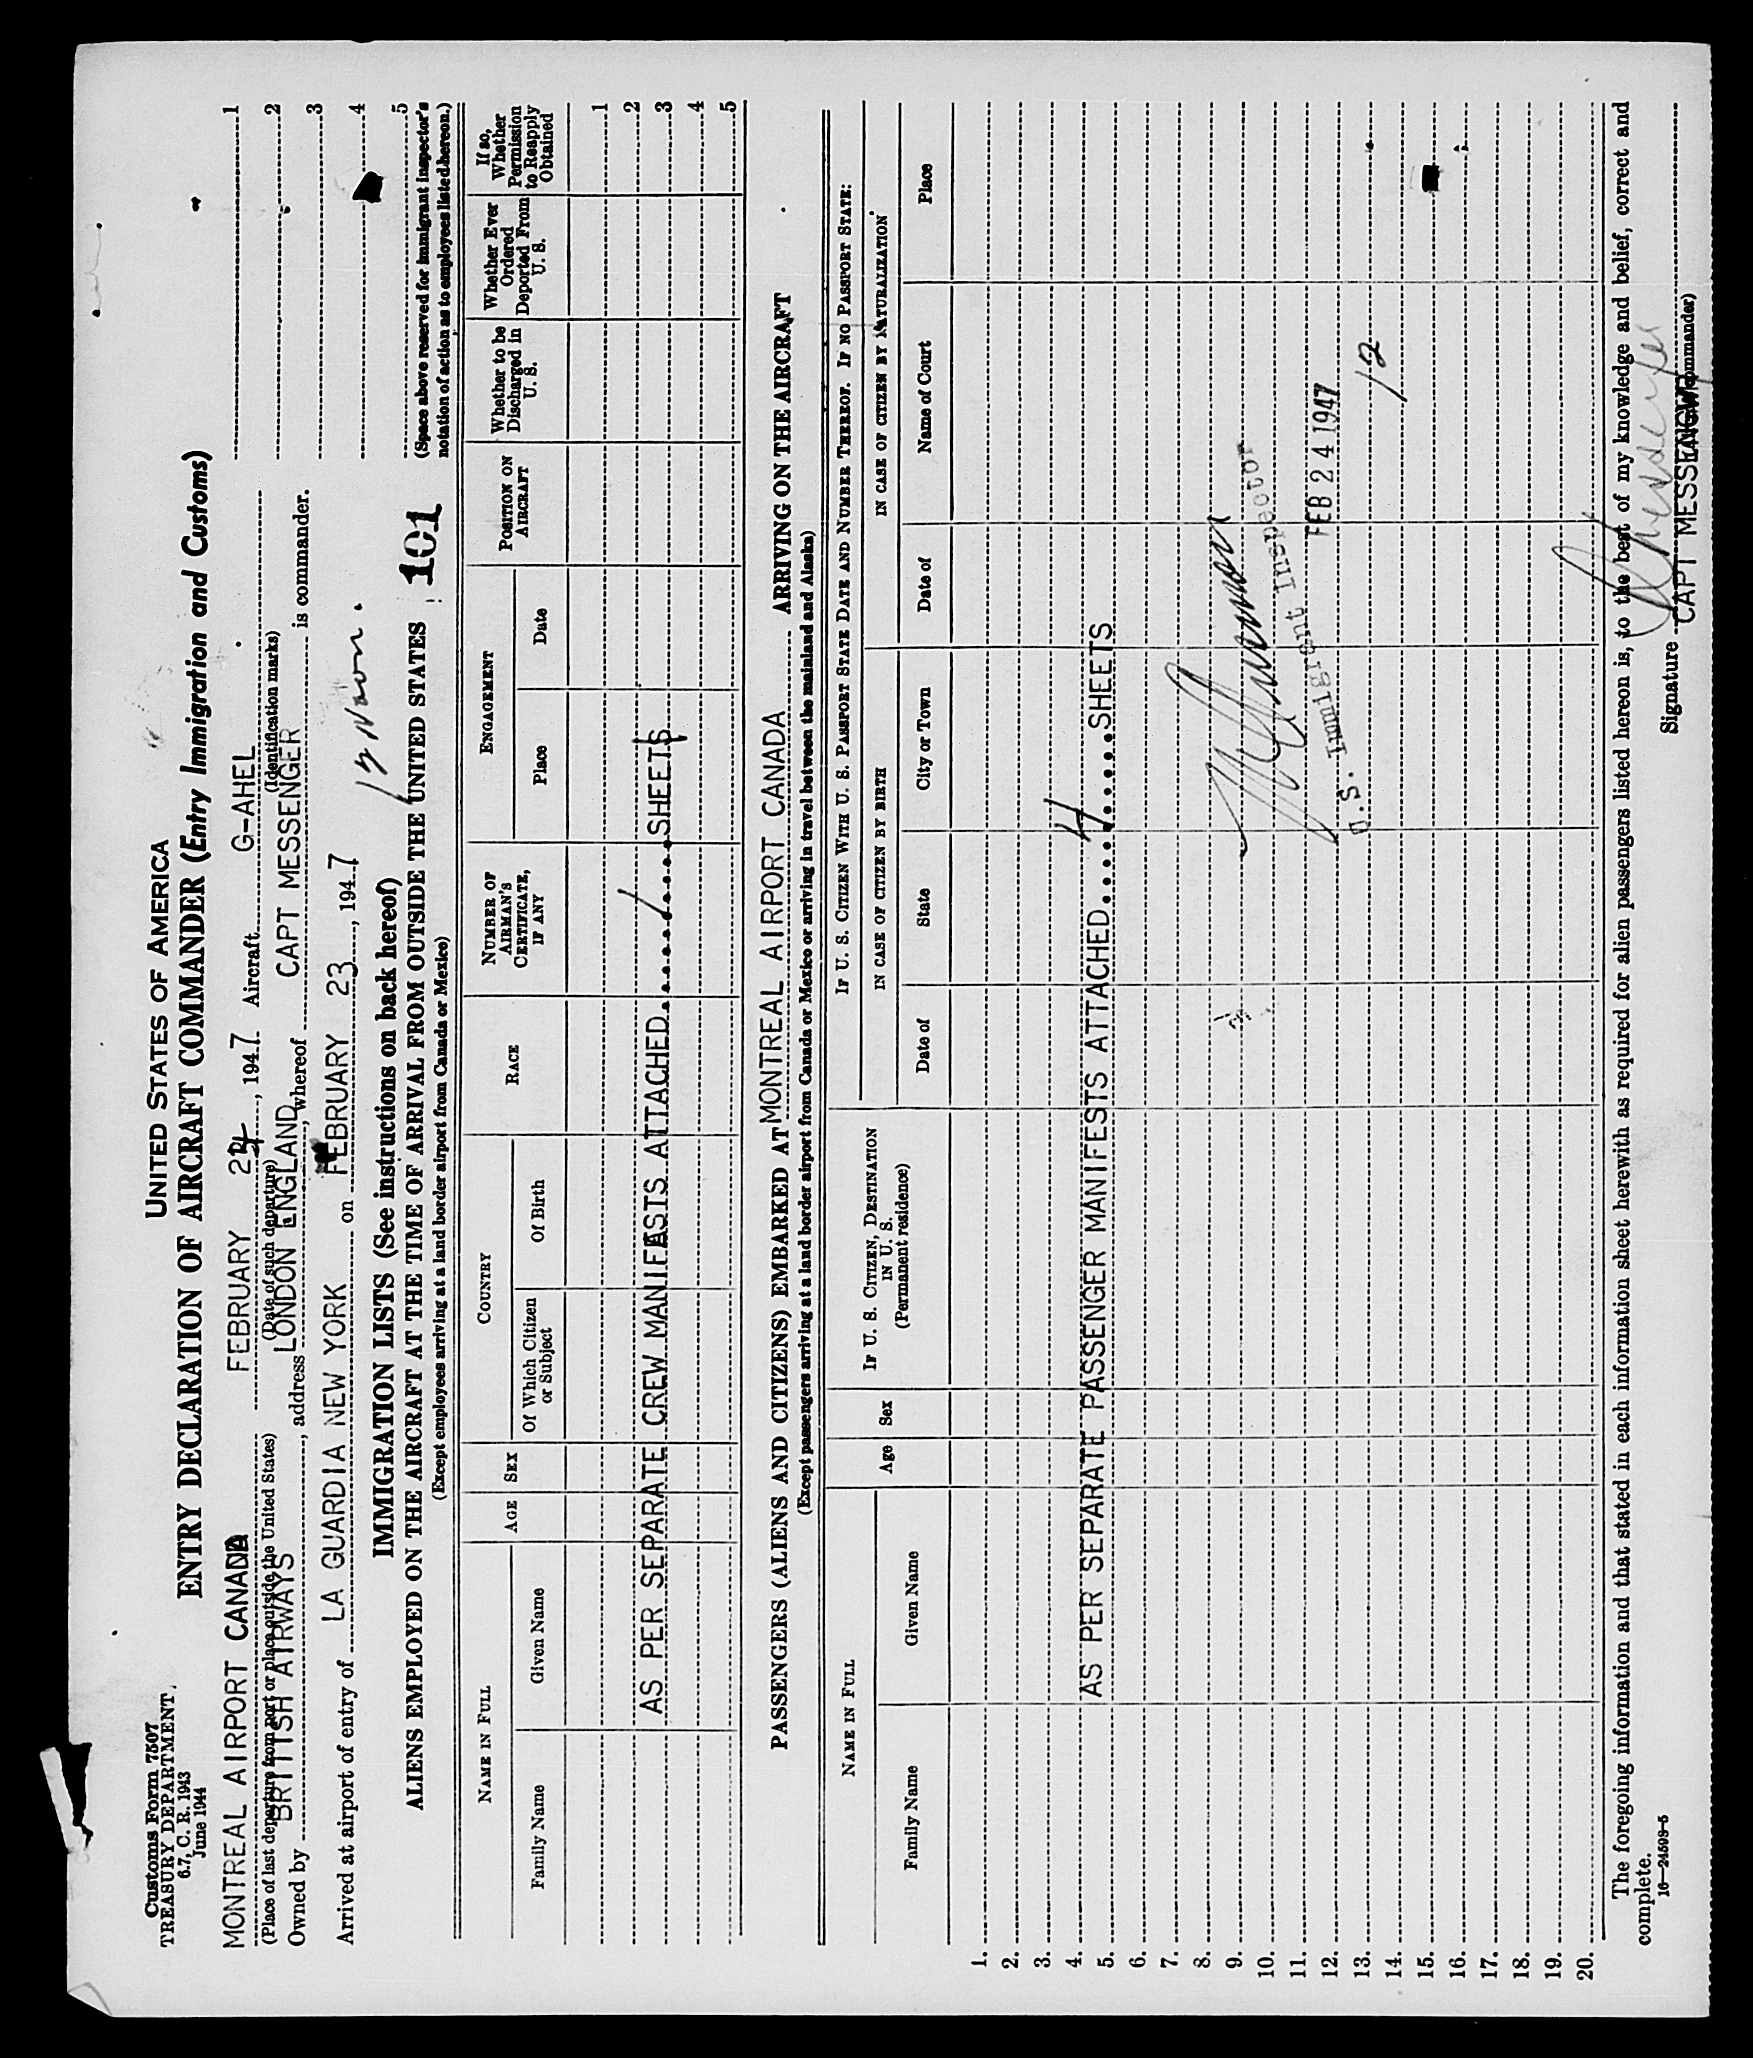 Customs Form 7507
TREASURY DEPARTMENT
6.7, C. R. 1943
June 1944
UNITED STATES OF AMERICA
ENTRY DECLARATION OF AIRCRAFT COMMANDER (Entry Immigration and Customs)
MONTREAL AIRPORT CANADA FEBRUARY 24, 1947 Aircraft G-AHEL
(Place of last departure from port or place outside the United States) (Date of such departure) (Identification marks)
Owned by BRITISH AIRWAYS, address LONDON ENGLAND, whereof CAPT MESSENGER is commander.
Arrived at airport of entry of LA GUARDIA NEW YORK on FEBRUARY 23, 1947
1
2
3
4
5
(Space above reserved for immigrant inspector's notation of action as to employees listed hereon.)
IMMIGRATION LISTS (See instructions on back hereof)
ALIENS EMPLOYED ON THE AIRCRAFT AT THE TIME OF ARRIVAL FROM OUTSIDE THE UNITED STATES 101
(Except employees arriving at a land border airport from Canada or Mexico)
NAME IN FULL
Family Name
Given Name
AGE
SEX
COUNTRY
Of Which Citizen or Subject
Of Birth
RACE
NUMBER OF AIRMAN'S CERTIFICATE, IF ANY
ENGAGEMENT
Place
Date
POSITION ON AIRCRAFT
Whether to be Discharged in U. S.
Whether Ever Ordered Deported From U. S.
If so, Whether Permission to Reapply Obtained
1
2
AS PER SEPARATE CREW MANIFESTS ATTACHED.....1.....SHEETS 3
4
5
PASSENGERS (ALIENS AND CITIZENS) EMBARKED AT MONTREAL AIRPORT CANADA ARRIVING ON THE AIRCRAFT
(Except passengers arriving at a land border airport from Canada or Mexico or arriving in travel between the mainland and Alaska)
NAME IN FULL
Family Name
Given Name
Age
Sex
IF U. S. CITIZEN, DESTINATION IN U. S.
(Permanent residence)
IF U. S. CITIZEN WITH U. S. PASSPORT STATE DATE AND NUMBER THEREOF. IF NO PASSPORT STATE:
IN CASE OF CITIZEN BY BIRTH
IN CASE OF CITIZEN BY NATURALIZATION
Date of
State
City or Town
Date of
Name of Court
Place
1.
2.
3.
4.
AS PER SEPARATE PASSENGER MANIFESTS ATTACHED.....4.....SHEETS
5.
6.
7.
8.
9.
10.
U.S. Immigrant Inspector
11.
FEB 24 1947
12.
13.
12
14.
15.
16.
17.
18.
19.
20.
The foregoing information and that stated in each information sheet herewith as required for alien passengers listed hereon is, to the best of my knowledge and belief, correct and
complete.
16—24598-5
Signature CAPT MESSENGER
(Commander)